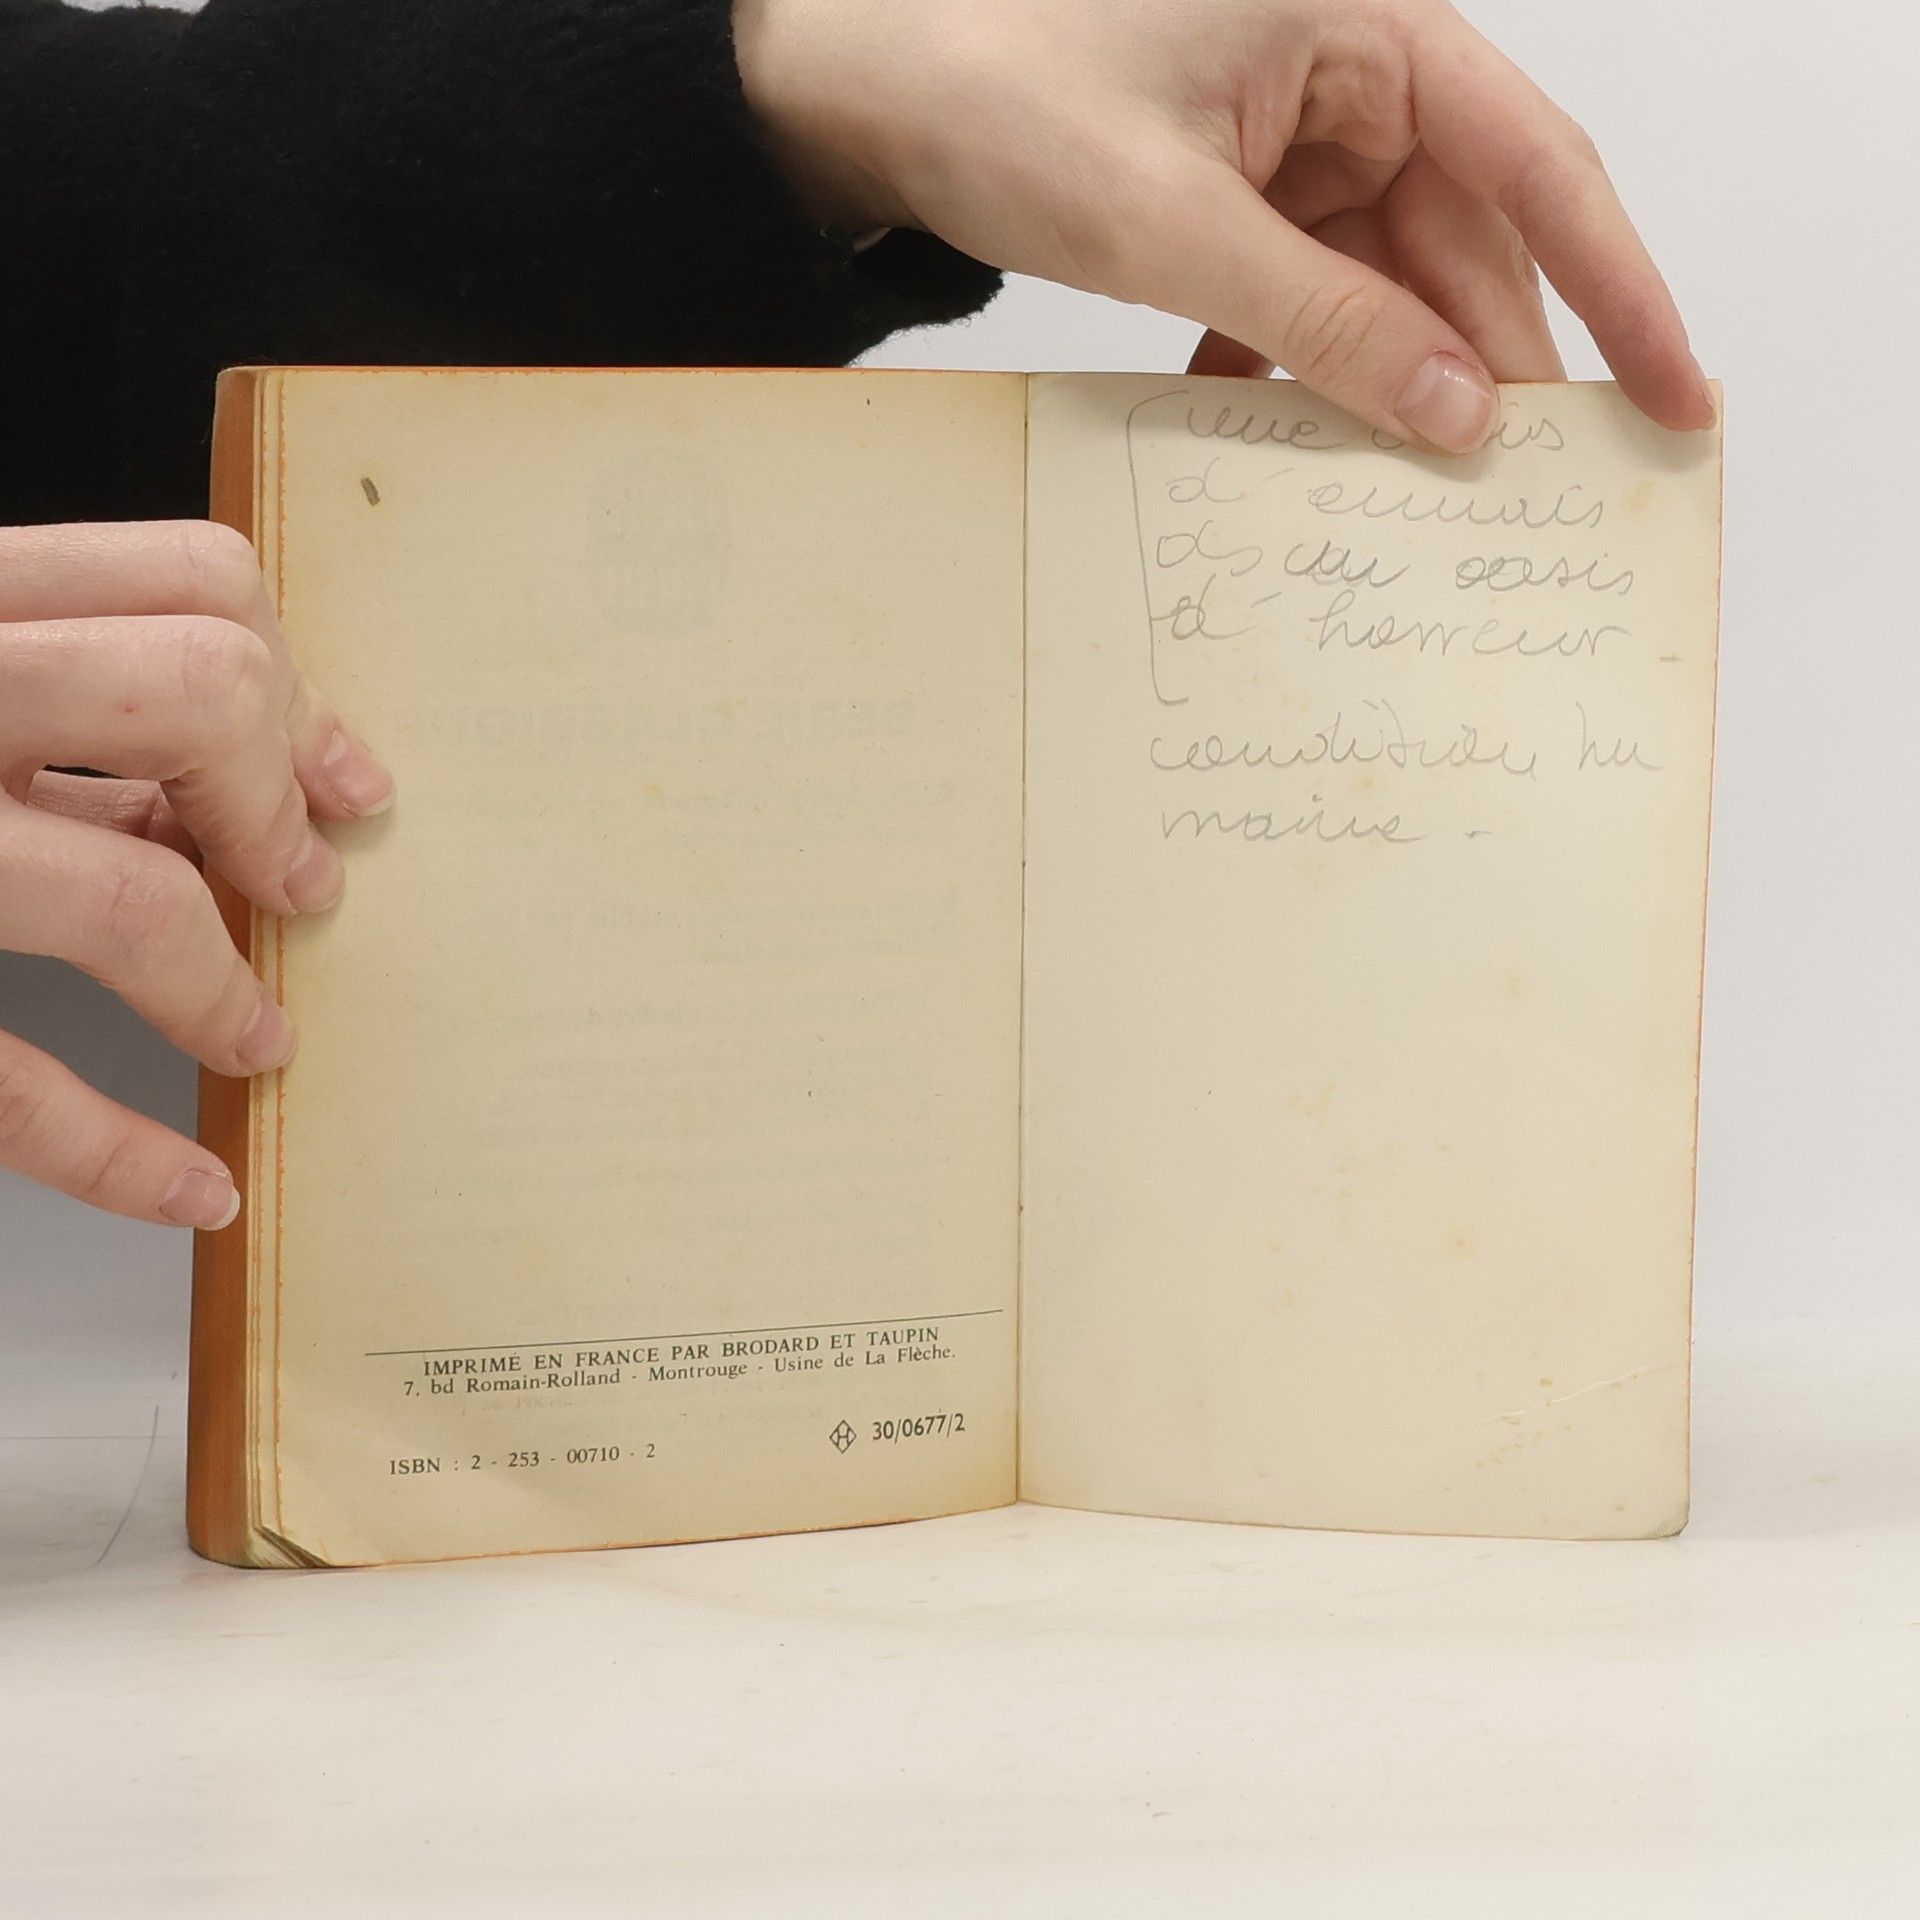 IMPRIMÉ EN FRANCE PAR BRODARD ET TAUPIN
7, bd Romain-Rolland - Montrouge - Usine de La Flèche.
ISBN : 2 - 253 - 00710 - 2
30/0677/2
une
d'
oasis
d'horreur -
condition hu
maine -